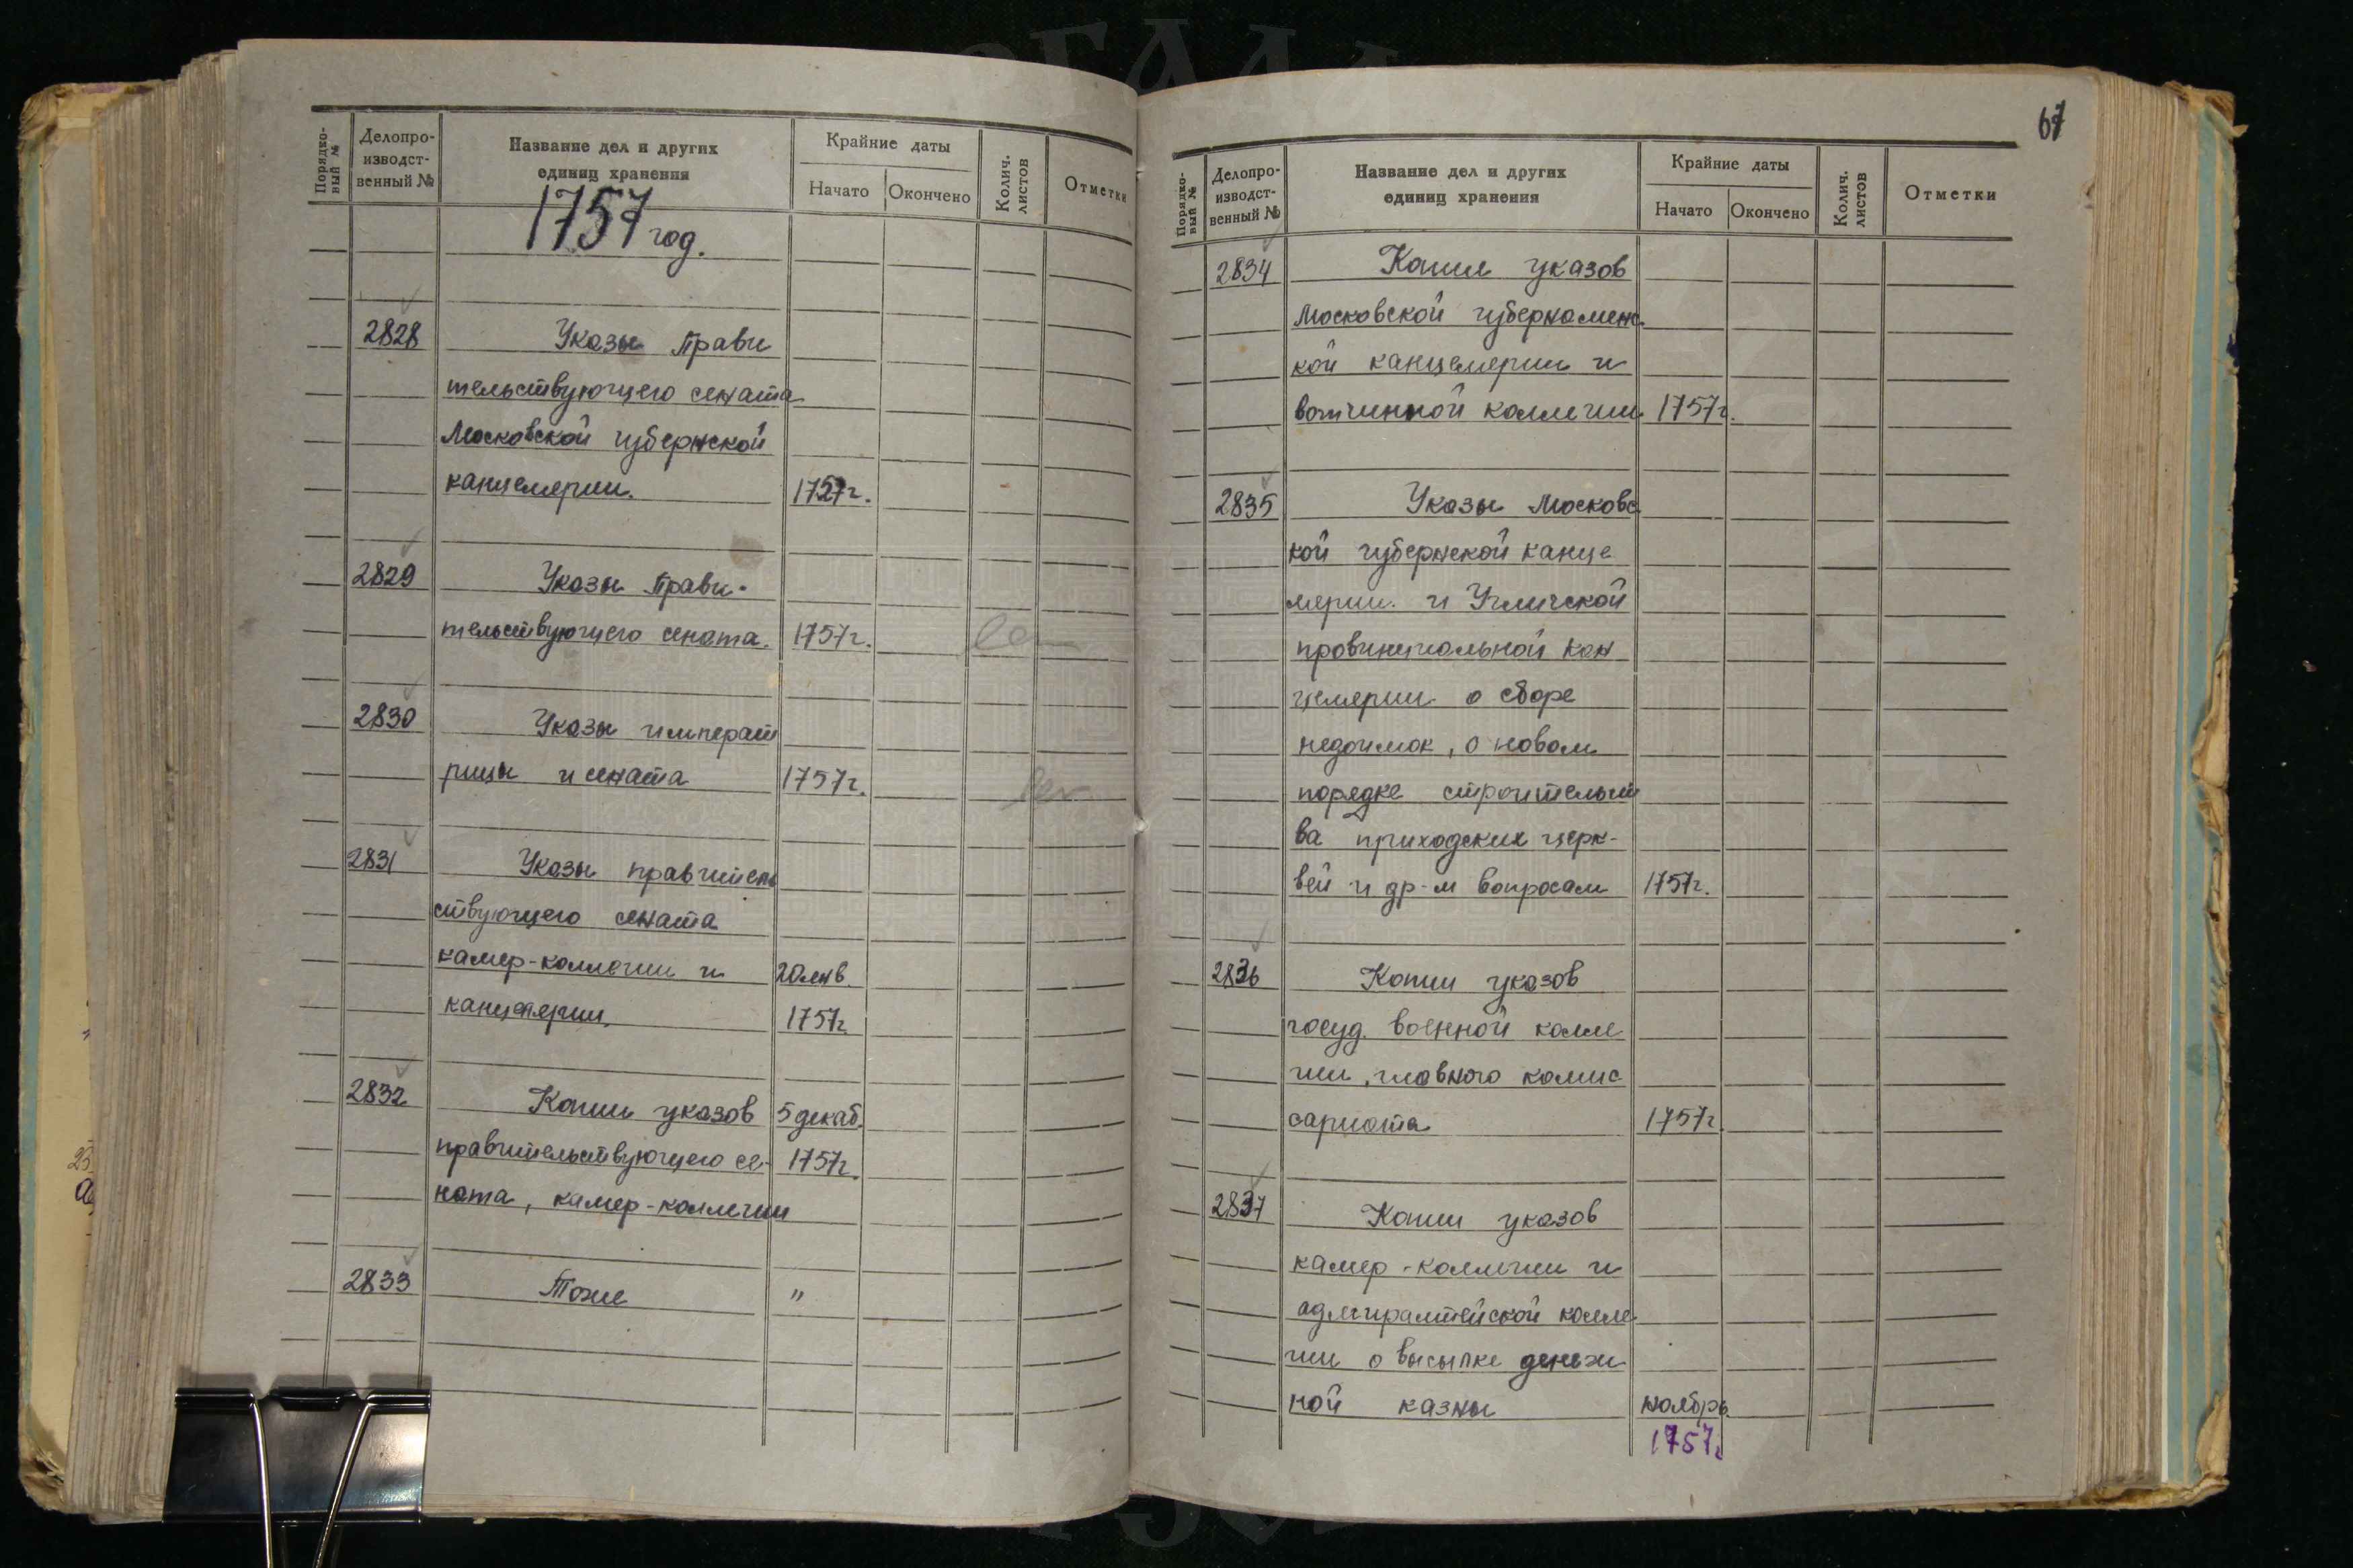 Порядко-
вый №
Делопро-
изводст-
венный №
Название дел и других
единиц хранения
Крайние даты
Начато
Окончено
Колич.
листов
Отметки
1757 год.
2828 Указы Прави
тельствующего сената
Московской губернской
канцелярии. 1757г.
2829 Указы Прави-
тельствующего сената. 1757г.
2830 Указы императ
рицы и сената 1757г.
2831 Указы правитель
ствующего сената
камер-коллегии и 20 янв.
канцелярии. 1757г
2832 Копии указов 5 декаб.
правительствующего се- 1757г.
ната, камер-коллегии
2833 Тоже "
67
Порядко-
вый №
Делопро-
изводст-
венный №
Название дел и других
единиц хранения
Крайние даты
Начато
Окончено
Колич.
листов
Отметки
2834 Копии указов
Московской губернаменс-
кой канцелярии и
вотчинной коллегии 1757г.
2835 Указы Московс
кой губернской канце
лярии. и Угличской
провинциальной кан
целярии о сборе
недоимок, о новом
порядке строительст
ва приходских церк-
вей и др-м вопросам 1757г.
2836 Копии указов
госуд. военной колле
гии, главного комис
сариата 1757г.
2837 Копии указов
камер-коллегии и
адмиралтейской колле
гии о высылке денеж
ной казны ноябрь
1757г